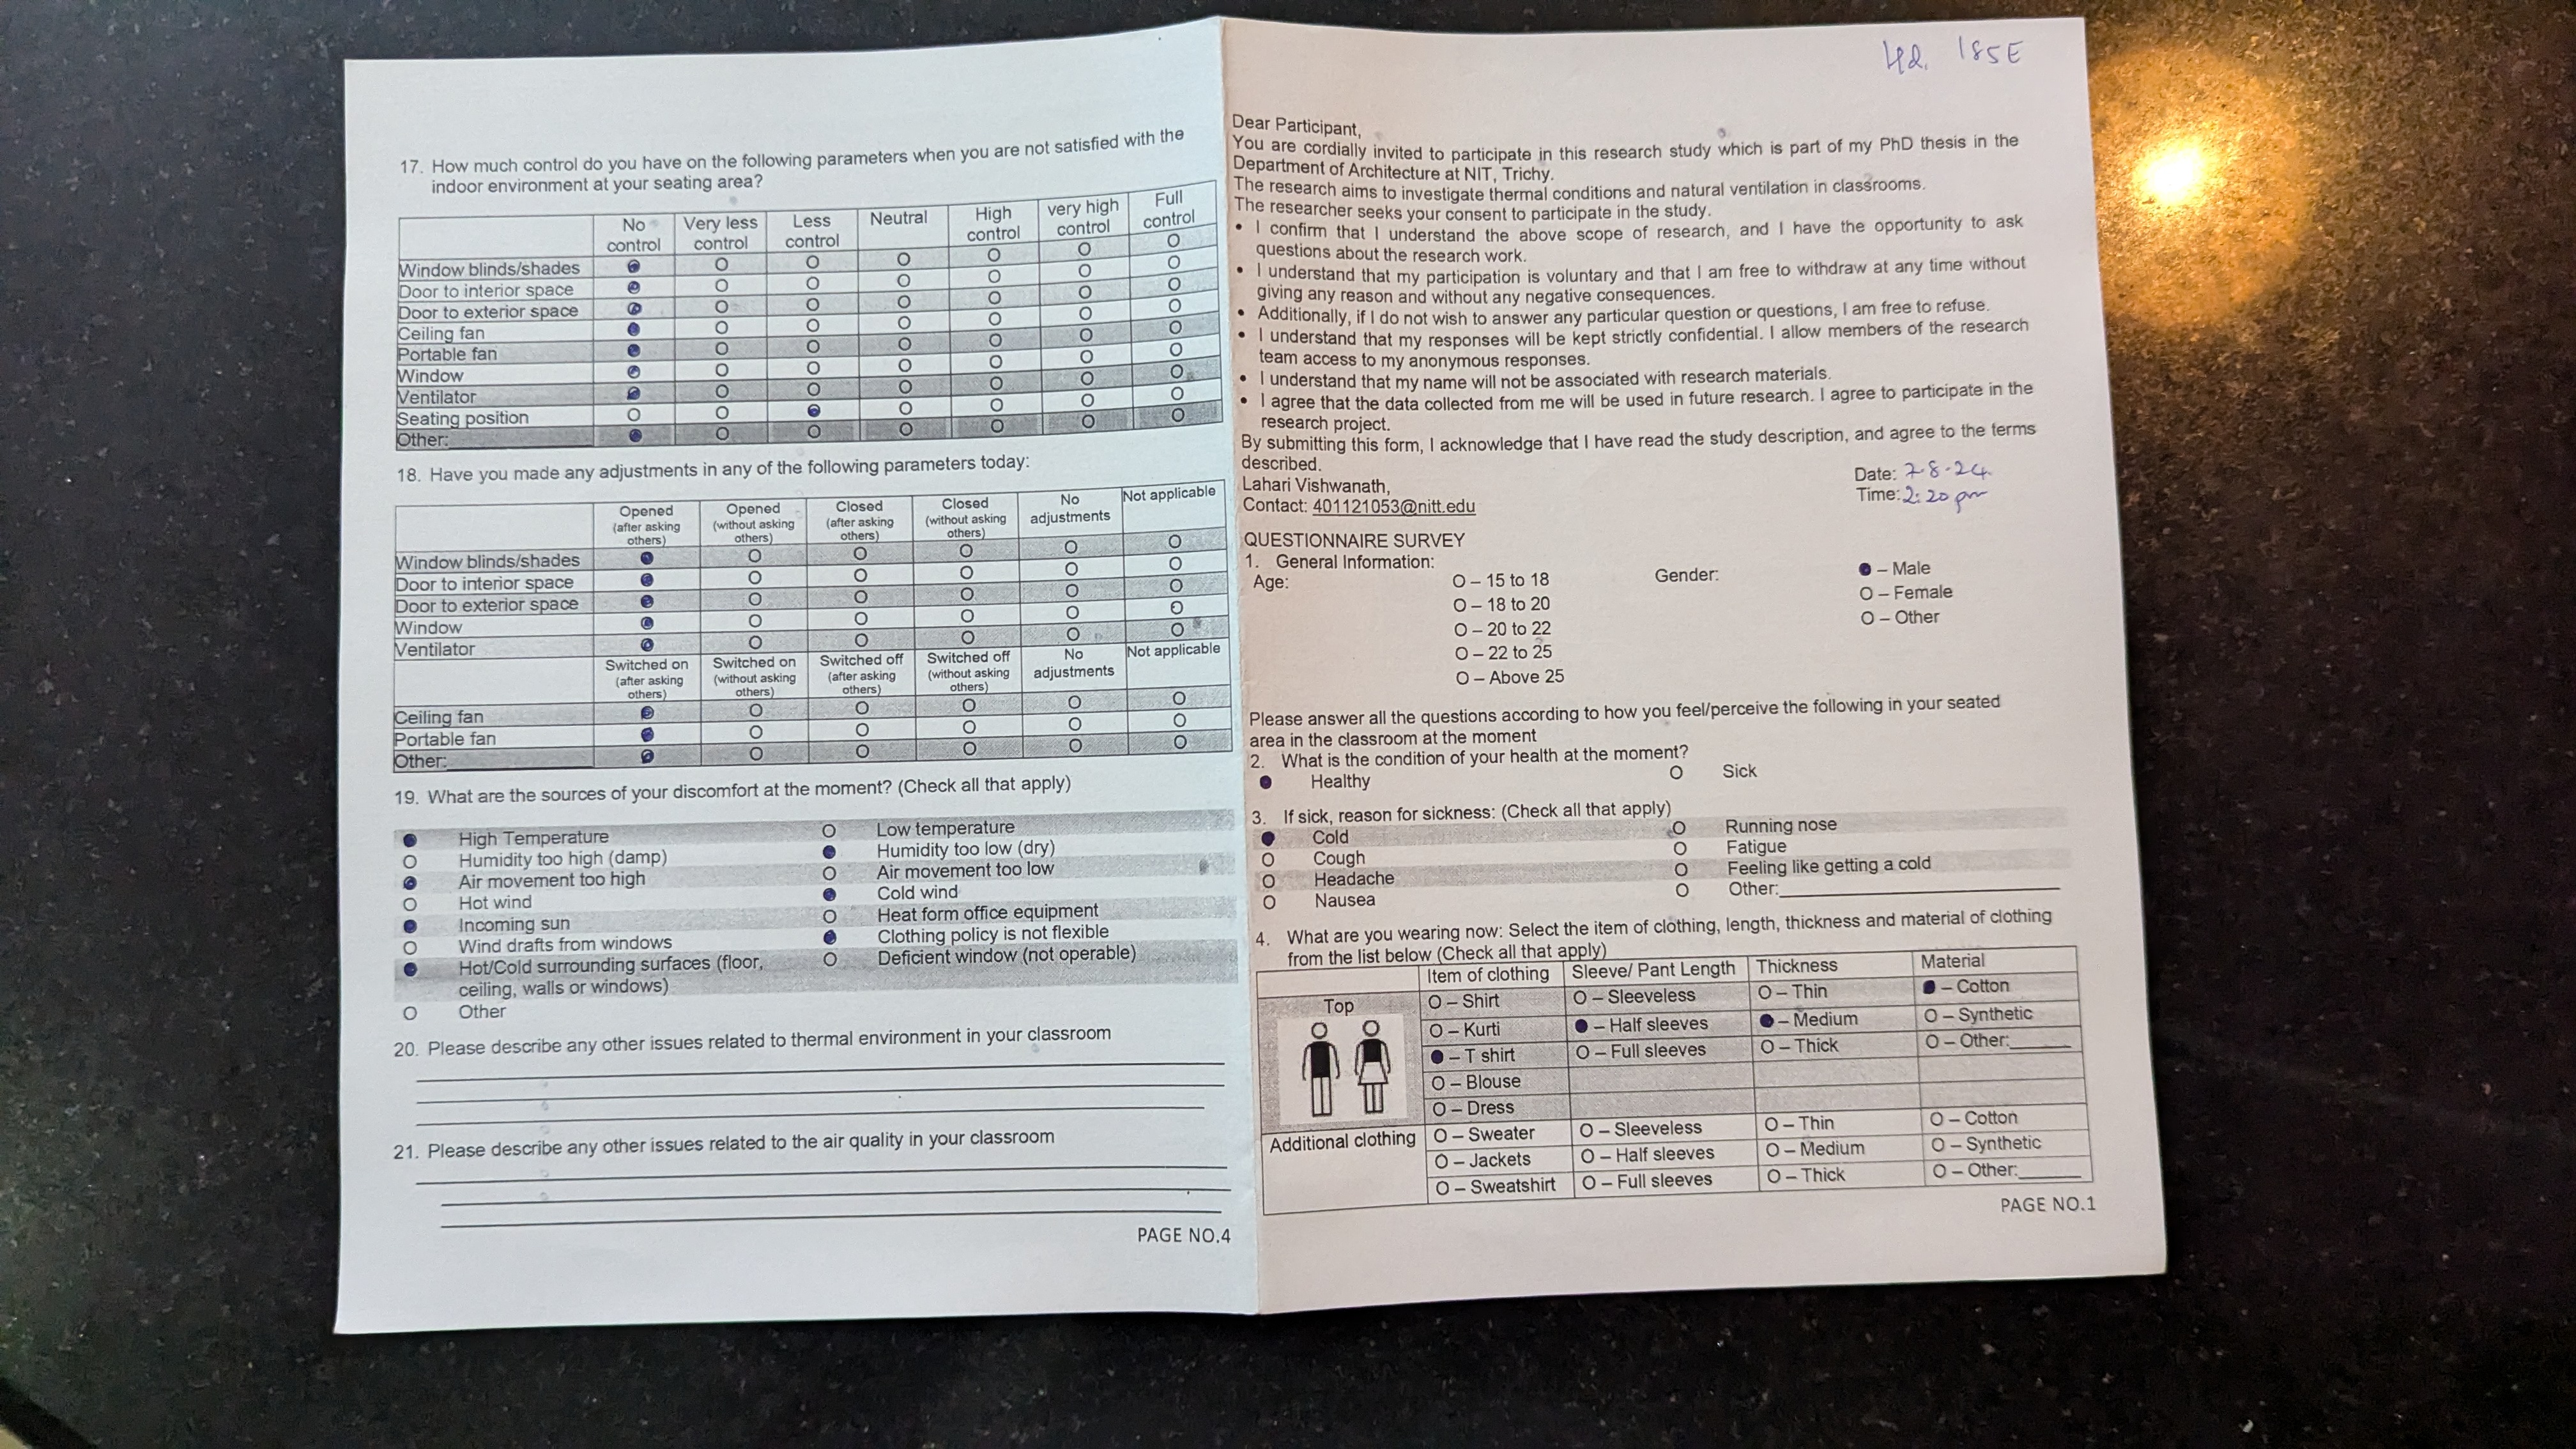 17. How much control do you have on the following parameters when you are not satisfied with the
indoor environment at your seating area?
No control Very less control Less control Neutral High control very high control Full control
Window blinds/shades ● O O O O O O
Door to interior space ● O O O O O O
Door to exterior space ● O O O O O O
Ceiling fan ● O O O O O O
Portable fan ● O O O O O O
Window ● O O O O O O
Ventilator ● O O O O O O
Seating position O O ● O O O O
Other: ● O O O O O O
18. Have you made any adjustments in any of the following parameters today:
Opened (after asking others) Opened (without asking others) Closed (after asking others) Closed (without asking others) No adjustments Not applicable
Window blinds/shades ● O O O O O
Door to interior space ● O O O O O
Door to exterior space ● O O O O O
Window ● O O O O O
Ventilator ● O O O O O
Switched on (after asking others) Switched on (without asking others) Switched off (after asking others) Switched off (without asking others) No adjustments Not applicable
Ceiling fan ● O O O O O
Portable fan ● O O O O O
Other: ● O O O O O
19. What are the sources of your discomfort at the moment? (Check all that apply)
● High Temperature O Low temperature
O Humidity too high (damp) ● Humidity too low (dry)
● Air movement too high O Air movement too low
O Hot wind ● Cold wind
● Incoming sun O Heat form office equipment
O Wind drafts from windows ● Clothing policy is not flexible
● Hot/Cold surrounding surfaces (floor, O Deficient window (not operable)
ceiling, walls or windows)
O Other
20. Please describe any other issues related to thermal environment in your classroom
21. Please describe any other issues related to the air quality in your classroom
PAGE NO.4
185E
Dear Participant,
You are cordially invited to participate in this research study which is part of my PhD thesis in the
Department of Architecture at NIT, Trichy.
The research aims to investigate thermal conditions and natural ventilation in classrooms.
The researcher seeks your consent to participate in the study.
• I confirm that I understand the above scope of research, and I have the opportunity to ask
questions about the research work.
• I understand that my participation is voluntary and that I am free to withdraw at any time without
giving any reason and without any negative consequences.
• Additionally, if I do not wish to answer any particular question or questions, I am free to refuse.
• I understand that my responses will be kept strictly confidential. I allow members of the research
team access to my anonymous responses.
• I understand that my name will not be associated with research materials.
• I agree that the data collected from me will be used in future research. I agree to participate in the
research project.
By submitting this form, I acknowledge that I have read the study description, and agree to the terms
described.
Lahari Vishwanath,
Contact: 401121053@nitt.edu
Date: 7-8-24
Time: 2:20 pm
QUESTIONNAIRE SURVEY
1. General Information:
Age: O – 15 to 18 Gender: ● – Male
O – 18 to 20 O – Female
O – 20 to 22 O – Other
O – 22 to 25
O – Above 25
Please answer all the questions according to how you feel/perceive the following in your seated
area in the classroom at the moment
2. What is the condition of your health at the moment?
● Healthy O Sick
3. If sick, reason for sickness: (Check all that apply)
● Cold O Running nose
O Cough O Fatigue
O Headache O Feeling like getting a cold
O Nausea O Other:
4. What are you wearing now: Select the item of clothing, length, thickness and material of clothing
from the list below (Check all that apply)
Item of clothing Sleeve/ Pant Length Thickness Material
Top O – Shirt O – Sleeveless O – Thin ● – Cotton
O – Kurti ● – Half sleeves ● – Medium O – Synthetic
● – T shirt O – Full sleeves O – Thick O – Other:
O – Blouse
O – Dress
Additional clothing O – Sweater O – Sleeveless O – Thin O – Cotton
O – Jackets O – Half sleeves O – Medium O – Synthetic
O – Sweatshirt O – Full sleeves O – Thick O – Other:
PAGE NO.1